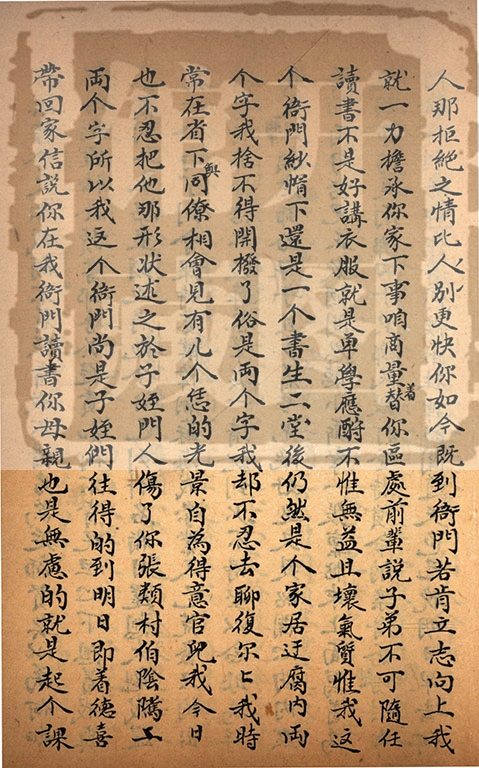 人那拒絶之情比人別更快你如今既到衙門若肯立志向上我
就一力擔承你家下事咱商量着替你區處前輩説子弟不可隨任
讀書不是好講衣服就是单學應酧不惟無益且壞氣質惟我这
个衙門紗帽下還是一个書生二堂後仍然是个家居迂腐内両
个字我捨不得開撥了俗是両个字我却不忍去聊復尔〻我時
常在省下與同僚相會見有几个恁的光景自為得意官況我今日
也不忍把他那形状述之於子姪門人傷了你張類村伯陰隲二
両个字所以我这个衙門尚是子姪們往得的到明日即着徳喜
帶回家信説你在我衙門讀書你母親也是無慮的就是起个課